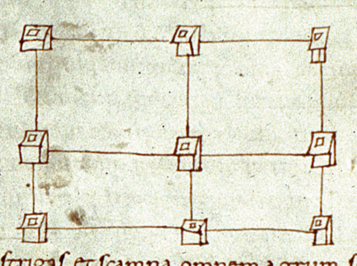 strigas et scamna omnem agrum